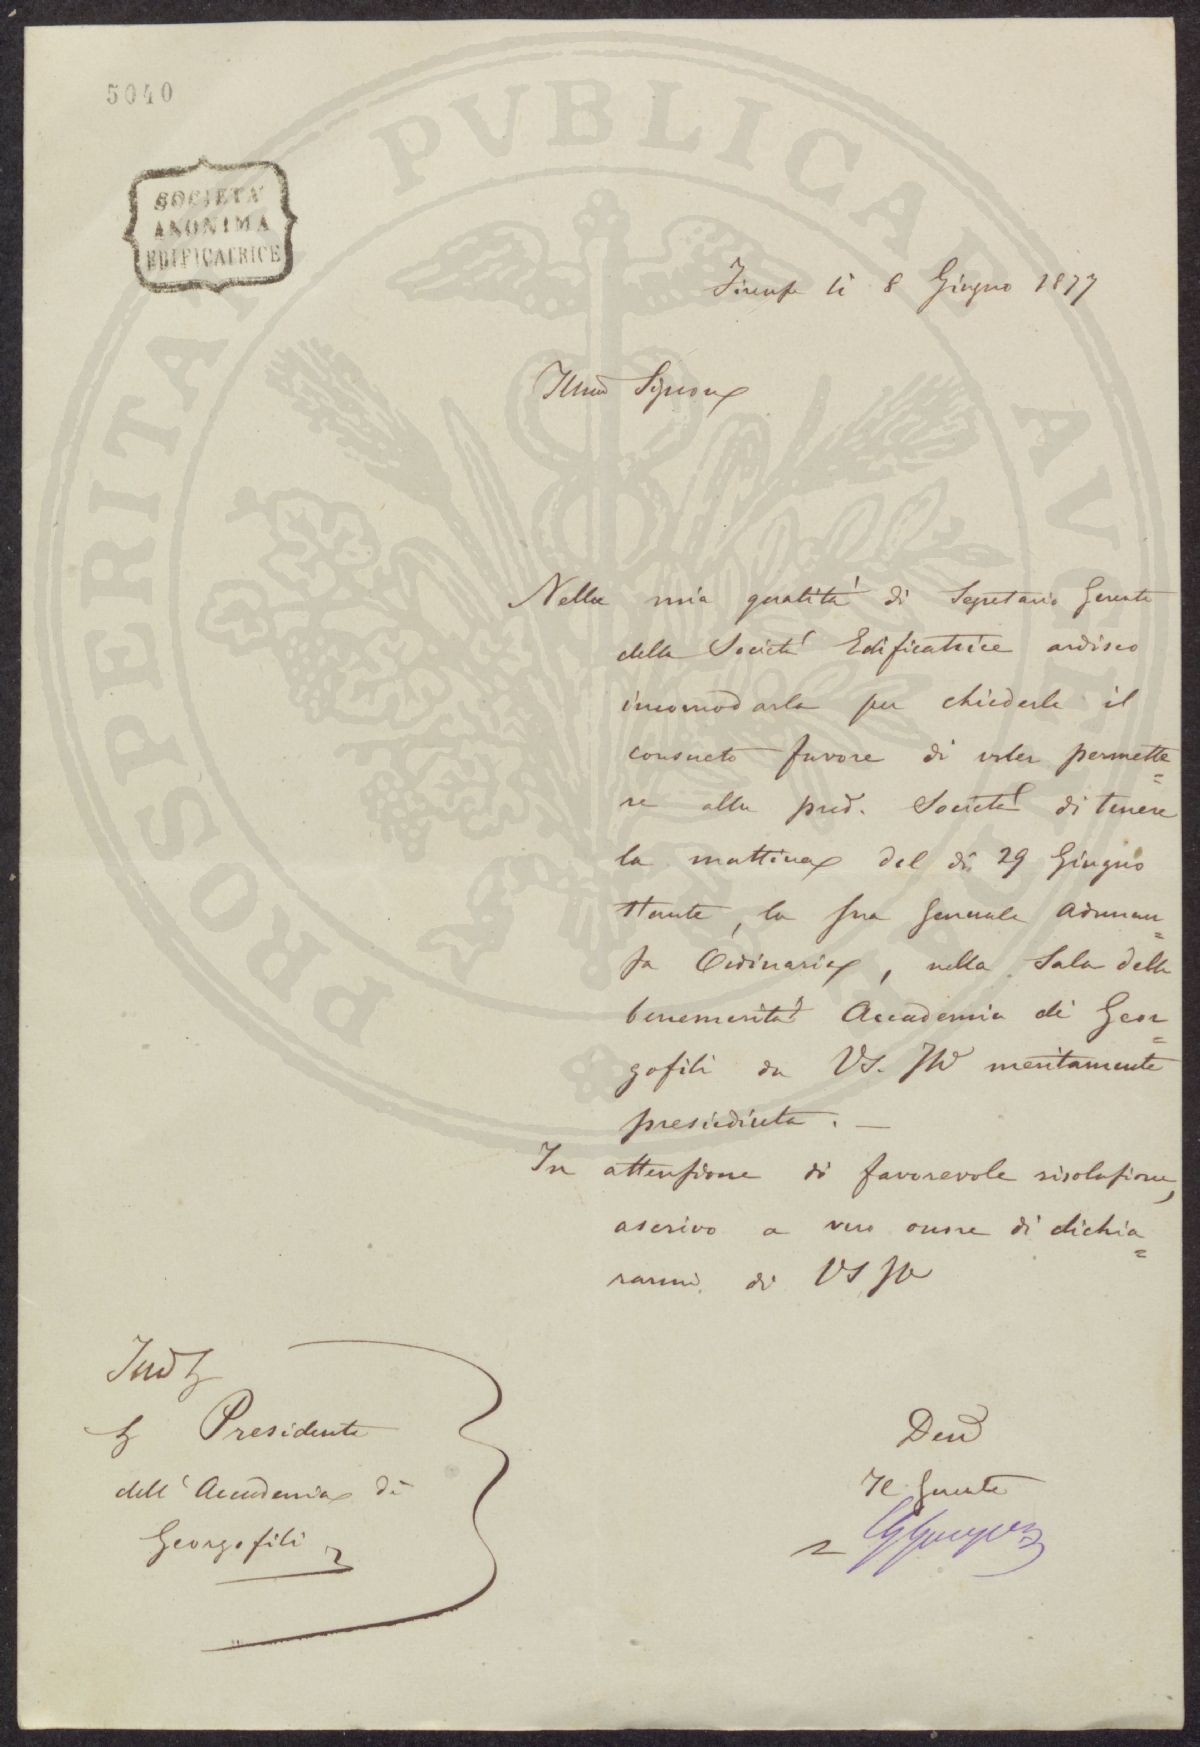 5040
SOCIETA'
ANONIMA
EDIFICATRICE
PROSPERITATI PVBLICAE AVGENDAE
Firenze li 8 Giugno 1877
Illmo Signore
Nella mia qualità di Segretario Gerente
della Società Edificatrice ardisco
incomodarla per chiederle il
consueto favore di voler permette=
re alla pred. Società di tenere
la mattina del dì 29 Giugno
stante, la sua Generale Adunan=
za Ordinaria, nella Sala della
benemerita Accademia di Geor=
gofili da VS. Ill meritamente
presieduta. —
In attenzione di favorevole risoluzione,
ascrivo a vero onore di dichia=
rarmi di VS Ill
Presidente
dell'Accademia di
Georgofili
Dev
Il Gerente